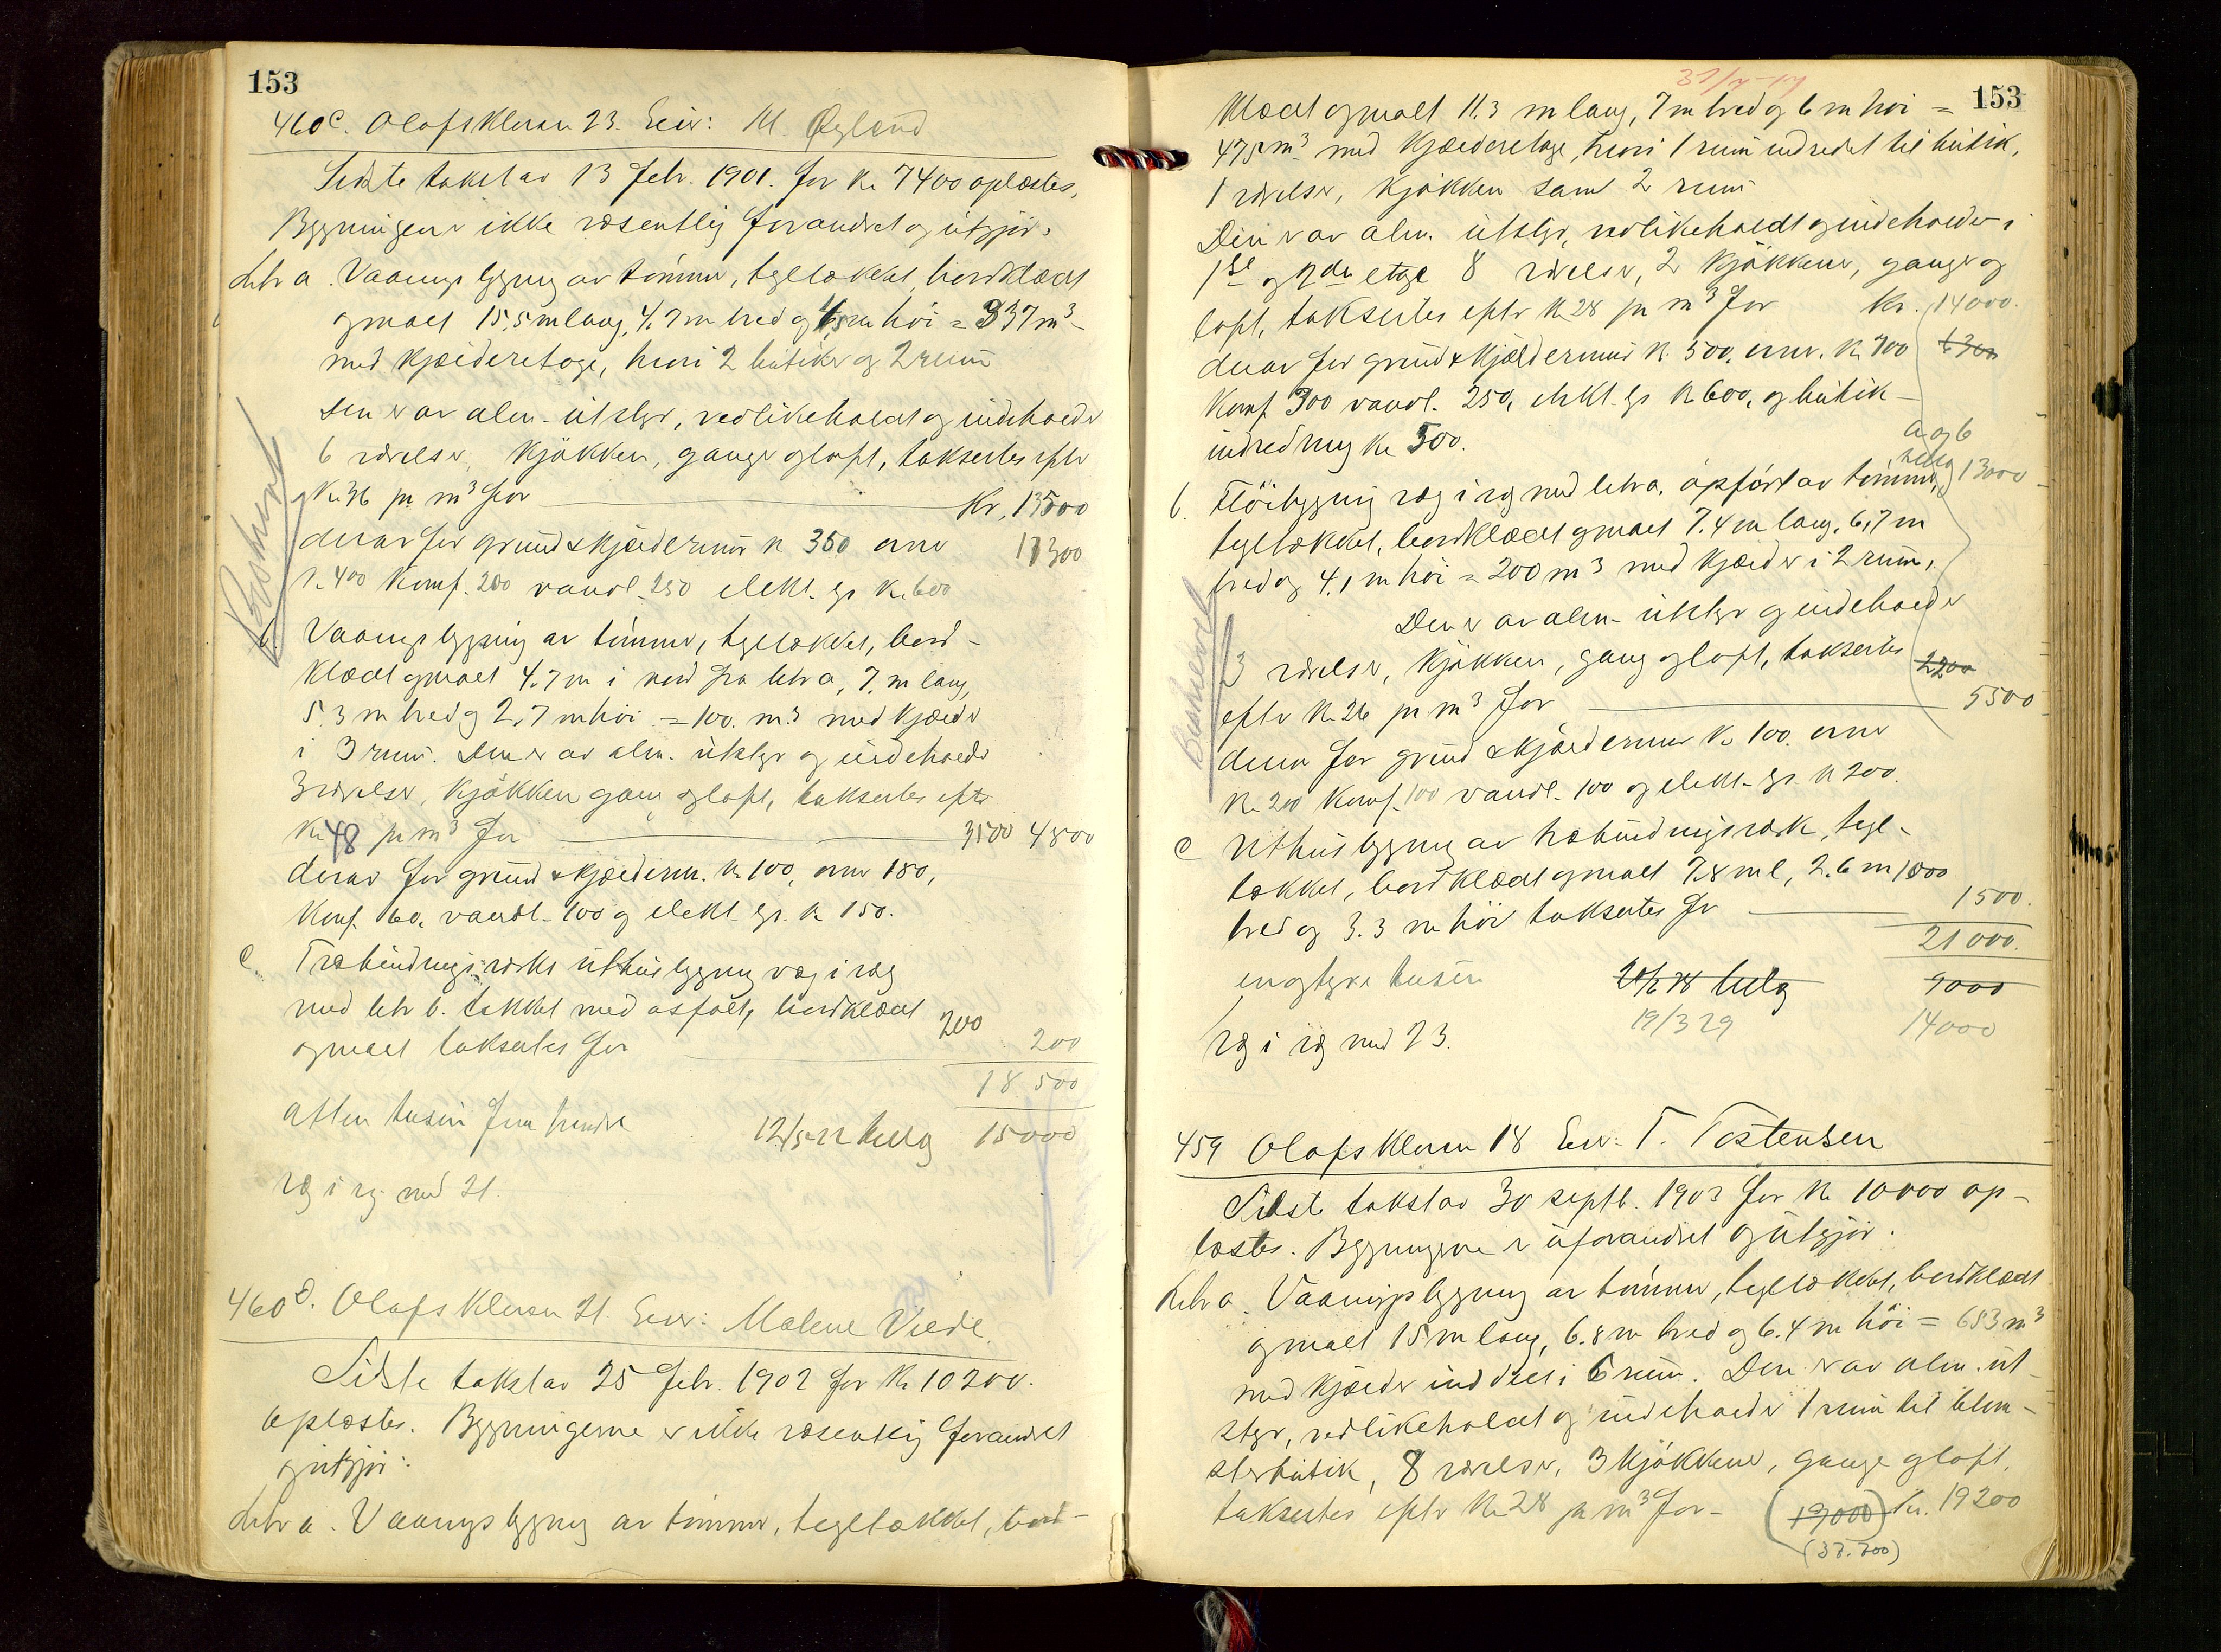 153
460c. Olafs Kleven 23. Eier: M. Øgland
Sidste takst av 13 febr. 1901. for kr 7400 oplæstes,
Bygningen er ikke væsentlig forandret og utgjør:
Litr a. Vaaningsbygning av tømmer, teglækket, bordklædt
og malt 15,5 m lang, 4.7 m bred og m høi = 337 m³
med kjelderetage, hvori 2 butiker og 2 rum
Den er av alm. utstyr, vedlikeholdt og indeholder
6 værelser, kjøkken, gange og loft, takseres efter
Kr. 36 pr m³ for Kr. 13500
derav for grund & kjeldermur kr 350 ovner 11300
kr. 400 komf. 200 vandl. 250 elekt. lys kr. 600
b. Vaaningsbygning av tømmer, teglækket, bord-
klædt og malt 4.7 m i nord fra litr a, 7. m lang,
5.3 m bred og 2.7 m høi = 100. m³ med kjelder
i 3 rum. Den er av alm. utstyr og indeholder
3 værelser, kjøkken gang og loft, takseres efter
Kr. 48 pr m³ for 3500 4800
derav for grund & kjelderm. kr 100, ovner 180,
Komf. 60. vandl. 100 og elekt. lys. kr 150.
c. Træbindingsverks uthusbygning væg i væg
med litr b. tækket med asfalt, bordklædt
og malt takseres for 200 200
18 500
atten tusin fem hundre 12/5 22 15000
væg i væg med 21.
460d. Olafs Kleven 21. Eier: Malene Viede.
Sidste takst av 25 febr. 1902 for kr 10200.
oplæstes. Bygningerne er ikke væsentlig forandret
og utgjør:
Litr a. Vaaningsbygning av tømmer, teglækket, bord-
153
klædt og malt 11.3 m lang, 7 m bred og 6 m høi =
475 m³ med kjelderetage, hvori 1 rum indredet til butik,
1 værelse, kjøkken samt 2 rum
Den er av alm. utstyr, vedlikeholdt og indeholder i
1ste og 2den etage 8 værelser, 2 kjøkkener, gange og
loft, takseres efter kr 28 pr m³ for Kr. 14000.
derav for grund & kjeldermur kr. 500. ovner. kr. 700 6300
Komf 300 vandl. 250, elekt. lys kr 600, og butik-
indredning kr 500.
a og b
13000
b. Fløibygning væg i væg med litr a. opført av tømmer,
teglækket, bordklædt og malt 7.4 m lang, 6,7 m
bred og 4.1 m høi = 200 m³ med kjelder i 2 rum,
Den er av alm. utstyr og indeholder
3 værelser, kjøkken, gang og loft, takseres 2200
efter kr 26 pr m³ for 5500
derav for grund & kjeldermur kr 100. ovner
kr. 200 komf. 100 vandl. 100 og elekt. lys. kr 200.
c Uthusbygning av træbindingsverk, tegl-
tækket, bordklædt og malt 7.8 m l, 2.6 m 1000
bred og 3.3 m høi takseres for 1500.
21 000.
en og tyve tusin 9000
væg i væg med 23. 19/3 29 14000
459 Olafs Kleven 18 Eier: T. Tostensen
Sidste takst av 30 septb. 1903 for kr 10000 op-
læstes. Bygningerne er uforandret og utgjør.
Litr a. Vaaningsbygning av tømmer, teglækket, bordklædt
og malt 15 m lang, 6.8 m bred og 6.4 m høi = 653 m³
med kjelder inddelt i 6 rum. Den er av alm. ut-
styr, vedlikeholdt og indeholder 1 rum til blom-
sterbutik, 8 værelser, 3 kjøkkener, gange og loft,
takseres efter kr 28 pr m³ for- (19000) Kr. 19200
(37.700)